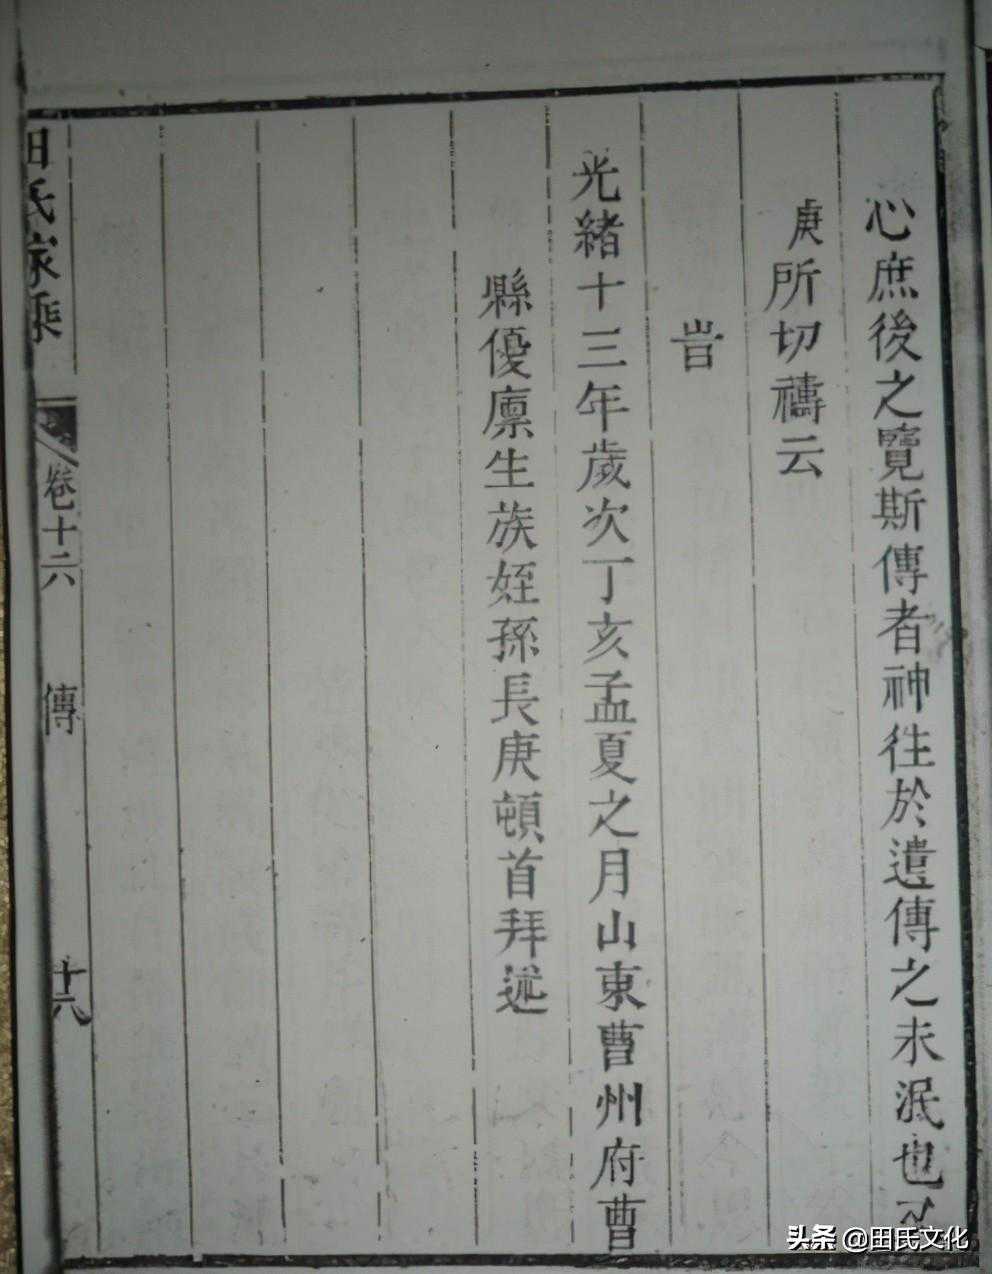 心庶後之覽斯傳者神徃於遺傳之未泯也
庚所切禱云
旹
光緒十三年歲次丁亥孟夏之月山東曹州府曹
縣優廩生族姪孫長庚頓首拜述
田氏家乘
卷十六
傳
十六
头条 @田氏文化